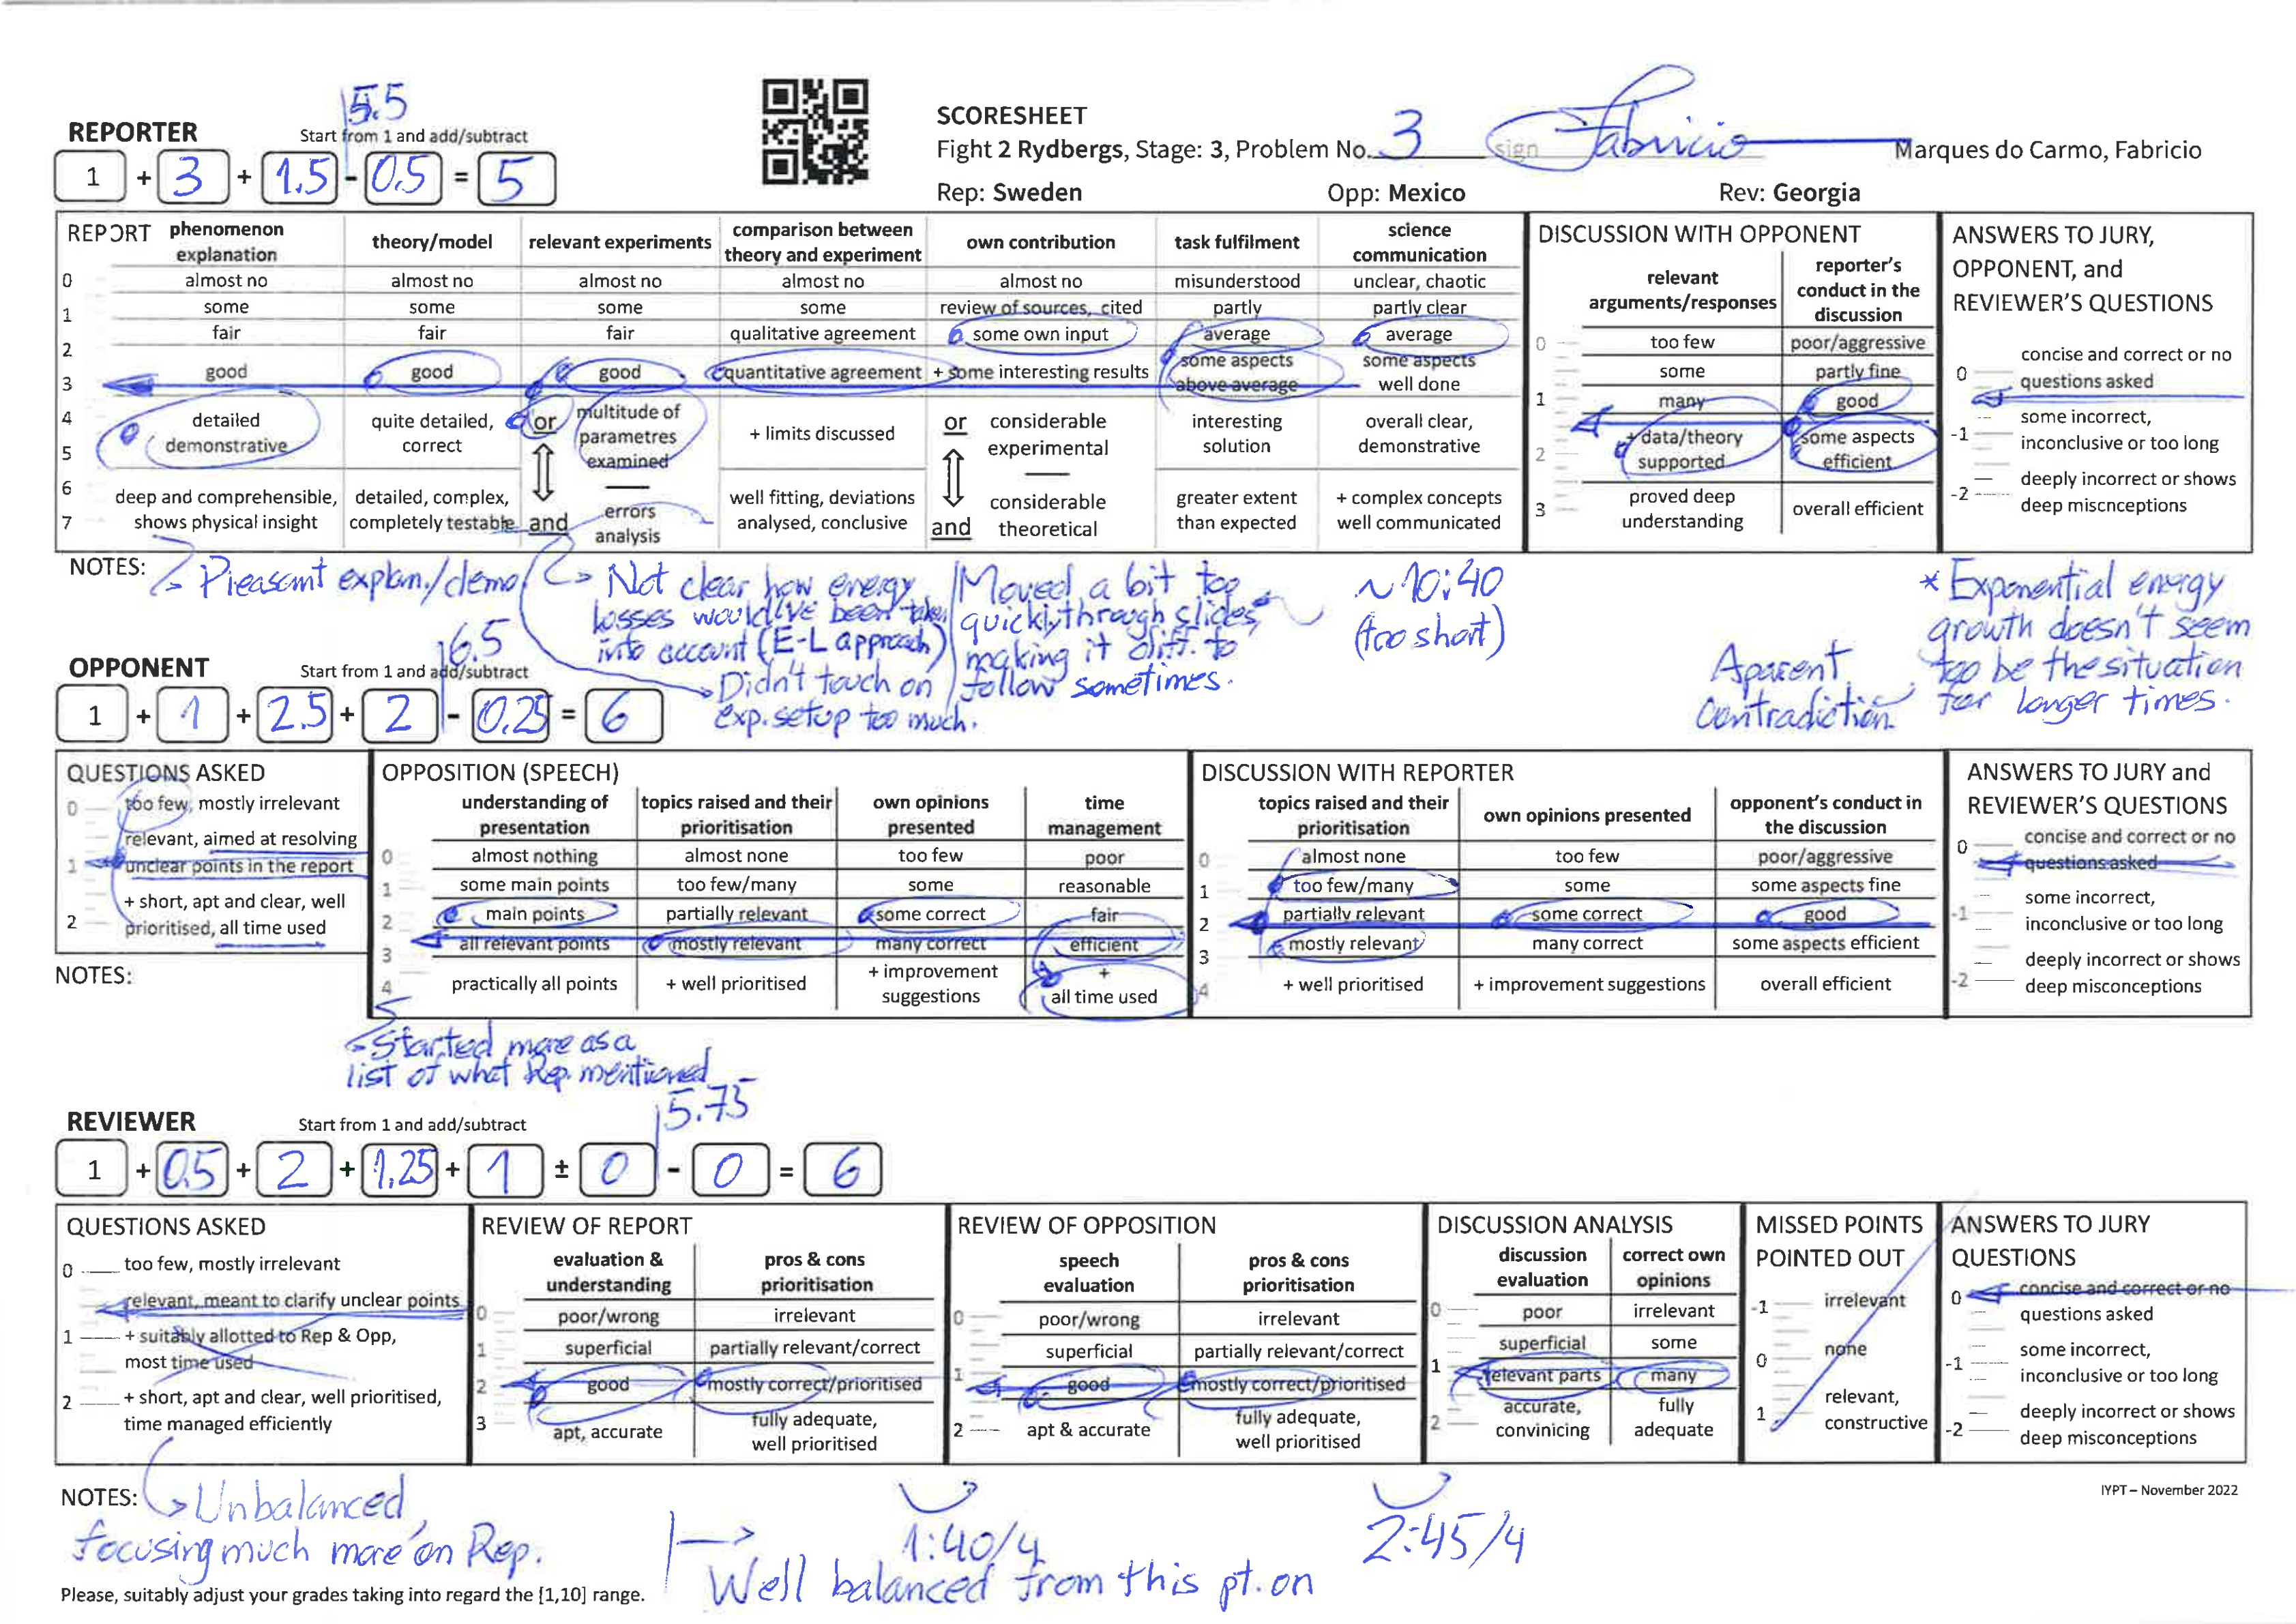 5.5
REPORTER Start from 1 and add/subtract
1 + 3 + 1.5 - 0.5 = 5
SCORESHEET
Fight 2 Rydbergs, Stage: 3, Problem No. 3 sign Fabricio Marques do Carmo, Fabricio
Rep: Sweden Opp: Mexico Rev: Georgia
REPORT phenomenon explanation theory/model relevant experiments comparison between theory and experiment own contribution task fulfilment science communication
0 almost no almost no almost no almost no almost no misunderstood unclear, chaotic
1 some some some some review of sources, cited partly partly clear
2 fair fair fair qualitative agreement some own input average average
3 good good good quantitative agreement + some interesting results some aspects above average some aspects well done
4 5 detailed demonstrative quite detailed, correct or multitude of parametres examined + limits discussed or considerable experimental interesting solution overall clear, demonstrative
6 7 deep and comprehensible, shows physical insight detailed, complex, completely testable and errors analysis well fitting, deviations analysed, conclusive and considerable theoretical greater extent than expected + complex concepts well communicated
DISCUSSION WITH OPPONENT
relevant arguments/responses reporter's conduct in the discussion
0 too few poor/aggressive
some partly fine
1 many good
2 + data/theory supported some aspects efficient
3 proved deep understanding overall efficient
ANSWERS TO JURY,
OPPONENT, and
REVIEWER'S QUESTIONS
0 concise and correct or no questions asked
-1 some incorrect, inconclusive or too long
-2 deeply incorrect or shows deep miscnceptions
NOTES:
Pleasant explan./demo
Not clear how energy
losses would've been taken
into account (E-L approach)
Didn't touch on
exp. setup too much.
Moved a bit too
quickly through slides,
making it diff. to
follow sometimes.
~10:40
(too short)
Aparent
Contradiction
* Exponential energy
growth doesn't seem
too be the situation
for longer times.
6.5
OPPONENT Start from 1 and add/subtract
1 + 1 + 2.5 + 2 - 0.25 = 6
QUESTIONS ASKED
0 too few, mostly irrelevant
relevant, aimed at resolving
1 unclear points in the report
+ short, apt and clear, well
2 prioritised, all time used
NOTES:
OPPOSITION (SPEECH)
understanding of presentation topics raised and their prioritisation own opinions presented time management
0 almost nothing almost none too few poor
1 some main points too few/many some reasonable
2 main points partially relevant some correct fair
3 all relevant points mostly relevant many correct efficient
4 practically all points + well prioritised + improvement suggestions + all time used
DISCUSSION WITH REPORTER
topics raised and their prioritisation own opinions presented opponent's conduct in the discussion
0 almost none too few poor/aggressive
1 too few/many some some aspects fine
2 partially relevant some correct good
3 mostly relevant many correct some aspects efficient
4 + well prioritised + improvement suggestions overall efficient
ANSWERS TO JURY and
REVIEWER'S QUESTIONS
0 concise and correct or no questions asked
-1 some incorrect, inconclusive or too long
-2 deeply incorrect or shows deep misconceptions
Started more as a
list of what Rep. mentioned
5.75
REVIEWER Start from 1 and add/subtract
1 + 0.5 + 2 + 1.25 + 1 ± 0 - 0 = 6
QUESTIONS ASKED
0 too few, mostly irrelevant
relevant, meant to clarify unclear points
1 + suitably allotted to Rep & Opp,
most time used
2 + short, apt and clear, well prioritised,
time managed efficiently
REVIEW OF REPORT
evaluation & understanding pros & cons prioritisation
0 poor/wrong irrelevant
1 superficial partially relevant/correct
2 good mostly correct/prioritised
3 apt, accurate fully adequate, well prioritised
REVIEW OF OPPOSITION
speech evaluation pros & cons prioritisation
0 poor/wrong irrelevant
superficial partially relevant/correct
1 good mostly correct/prioritised
2 apt & accurate fully adequate, well prioritised
DISCUSSION ANALYSIS
discussion evaluation correct own opinions
0 poor irrelevant
superficial some
1 relevant parts many
2 accurate, convinicing fully adequate
MISSED POINTS
POINTED OUT
-1 irrelevant
0 none
1 relevant, constructive
ANSWERS TO JURY
QUESTIONS
0 concise and correct or no questions asked
-1 some incorrect, inconclusive or too long
-2 deeply incorrect or shows deep misconceptions
NOTES:
Unbalanced,
focusing much more on Rep.
1:40/4
2:45/4
Well balanced from this pt. on
IYPT – November 2022
Please, suitably adjust your grades taking into regard the [1,10] range.